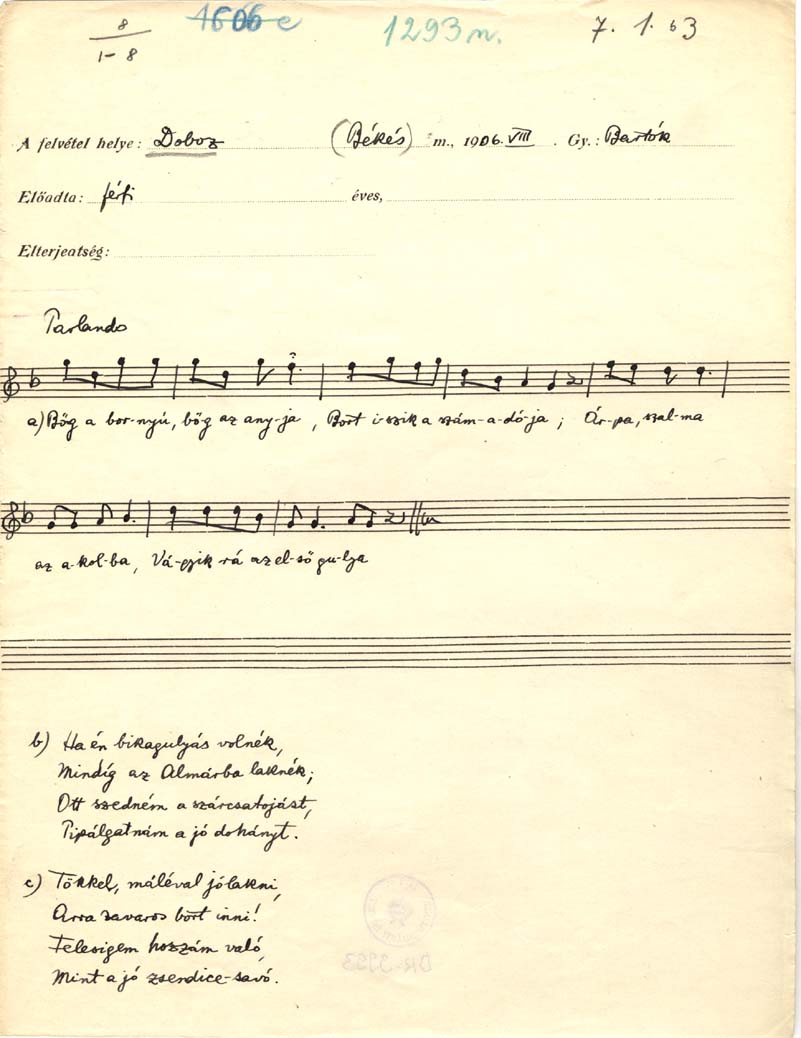 8
1-8
1606 e
1293 m.
7. 1. 63
A felvétel helye: Doboz (Békés) m., 1906. VIII. Gy.: Bartók
Előadta: férfi éves,
Elterjeatség:
Parlando
a) Bőg a bor-nyú, bőg az any-ja, Bort i-szik a szám-a-dó-ja; Ár-pa, szal-ma
az a-kol-ba, Vá-gyik rá az el-ső gu-lya
b) Ha én bikagulyás volnék,
Mindíg az Almárba laknék;
Ott szedném a szárcsatojást,
Pipálgatnám a jó dohányt.
c) Tökkel, máléval jólakni,
Arra savaros bort inni!
Felesigem hozzám való,
Mint a jó zsendice-savó.